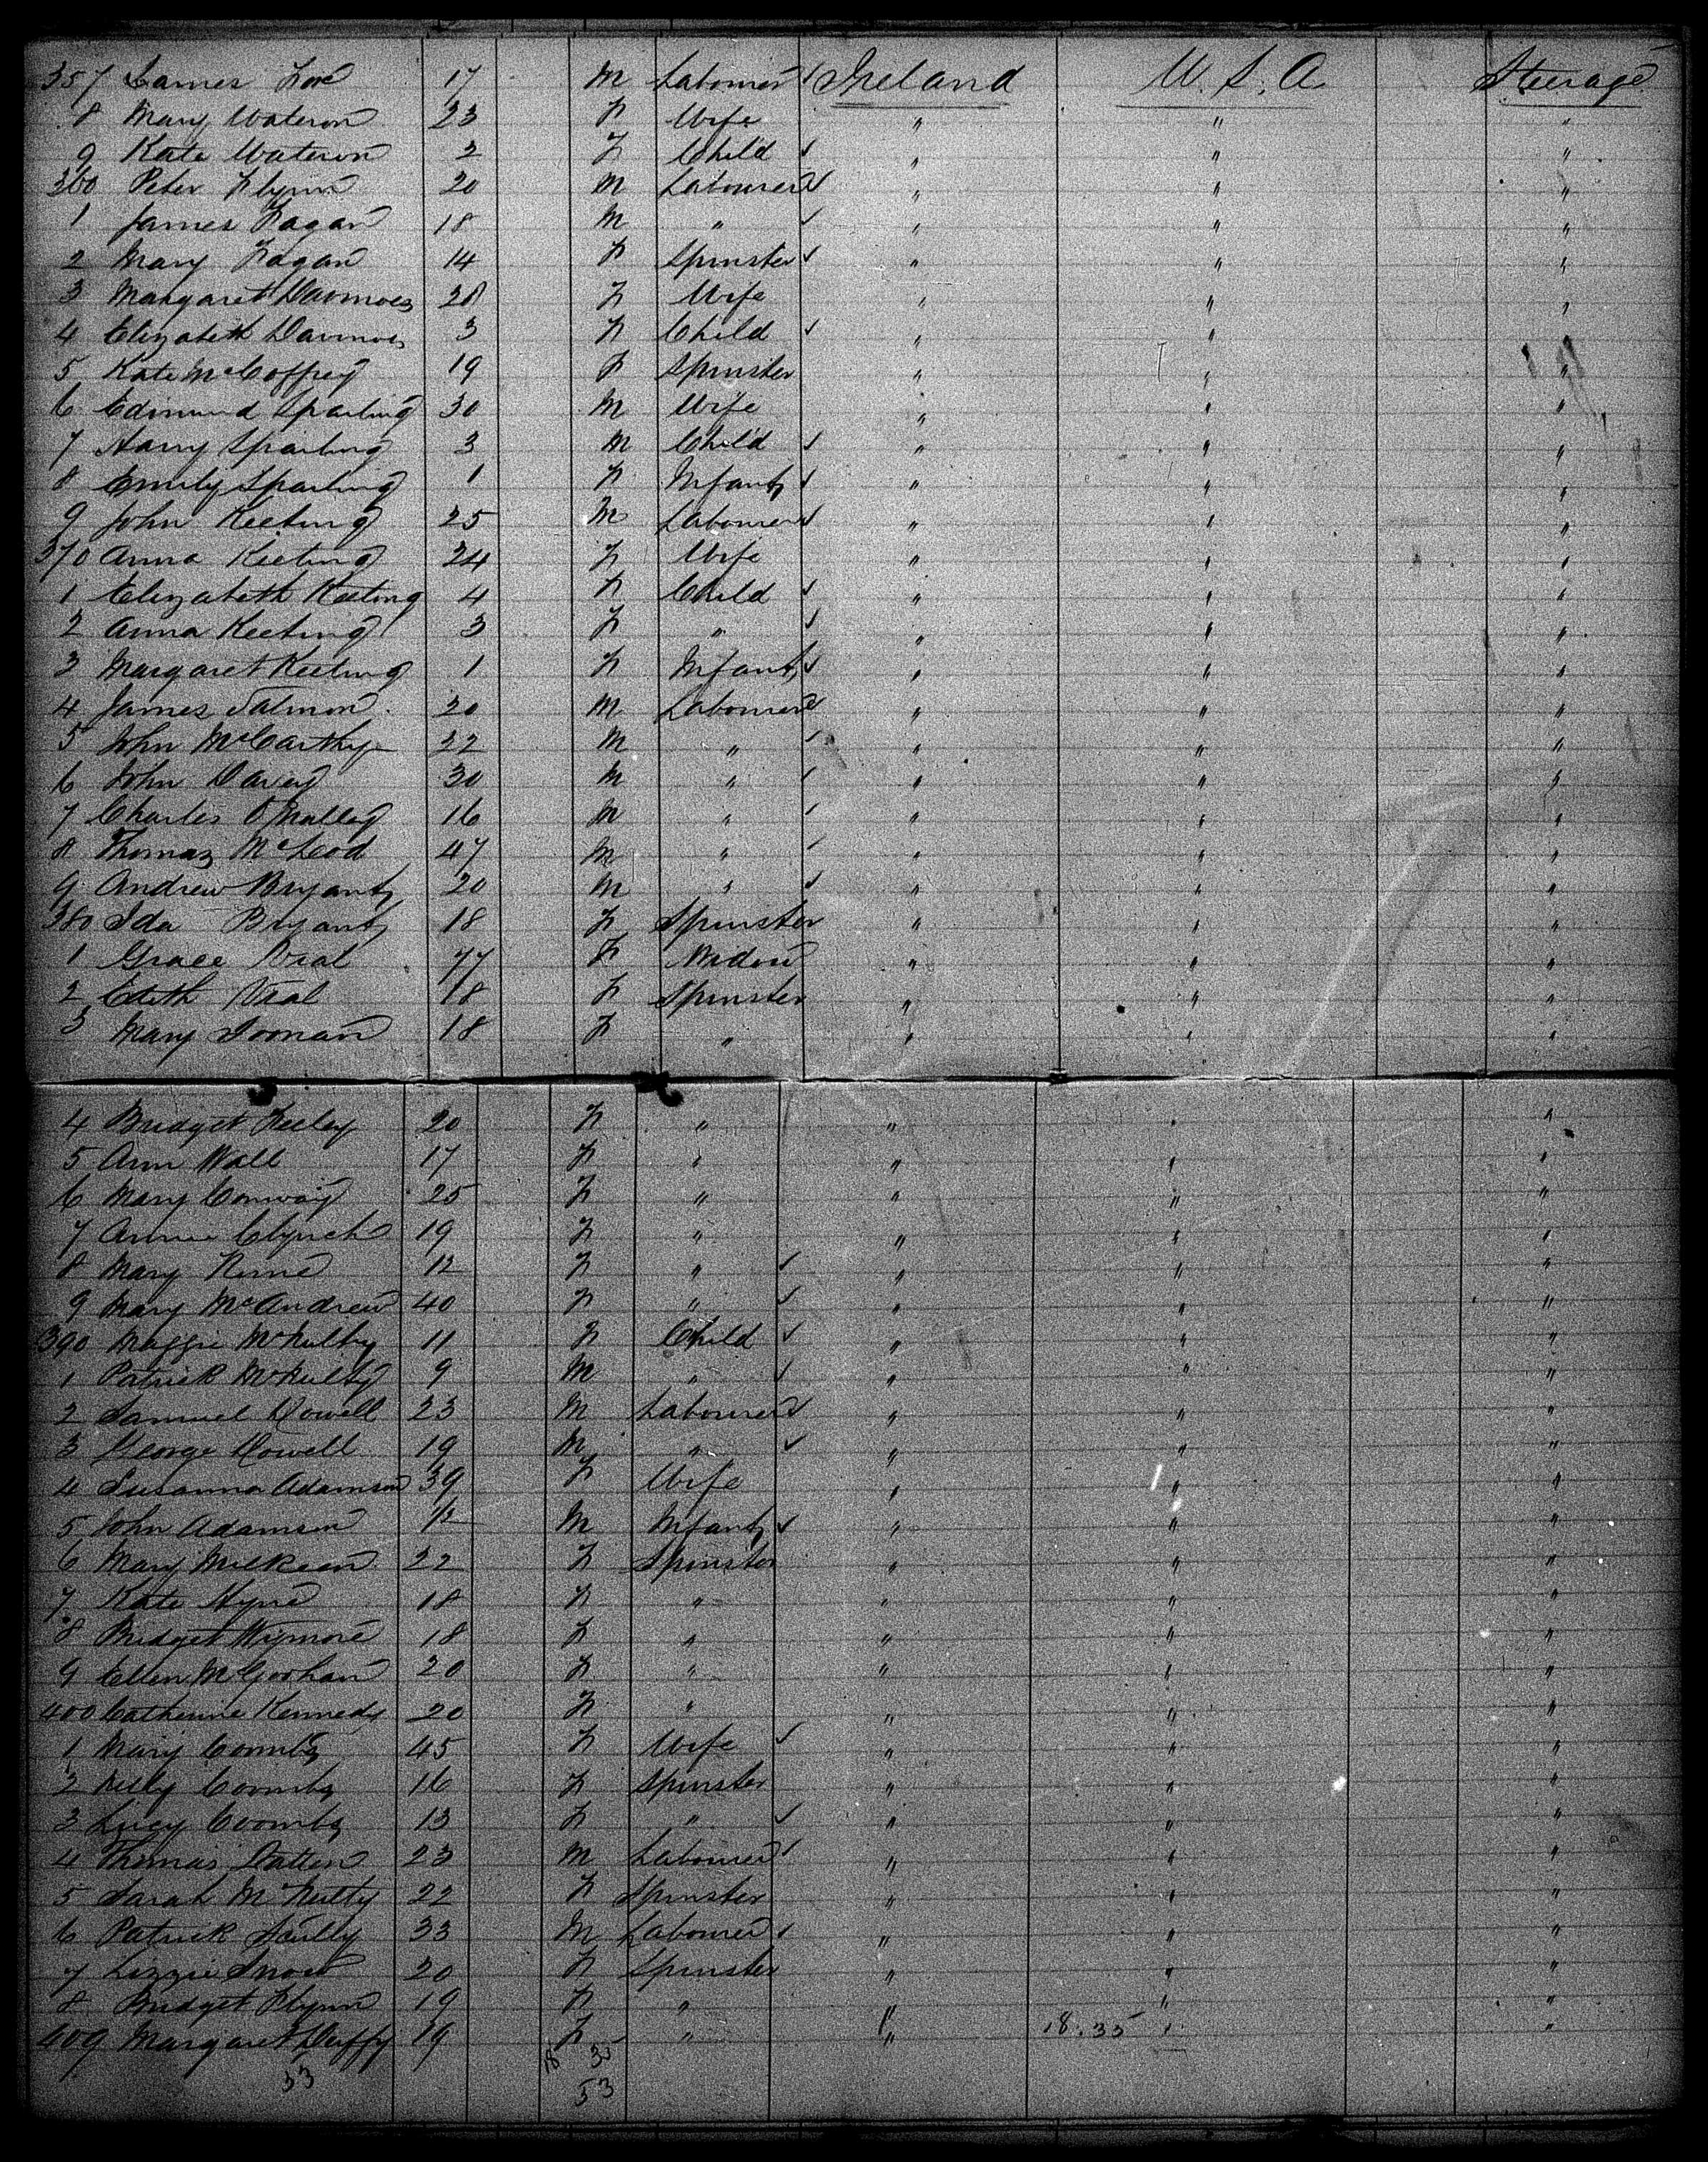 357 James Fox 17 M Labourer Ireland U.S.A. Steerage
8 Mary Wateron 23 F Wife " " "
9 Kate Wateron 2 F Child " " "
360 Peter Flynn 20 M Labourer " " "
1 James Fagan 18 M " " " "
2 Mary Fagan 14 F Spinster " " "
3 Margaret 28 F Wife " " "
4 Elizabeth 3 F Child " " "
5 Kate McCoffrey 19 F Spinster " " "
6 Edmund Sparling 30 M Wife " " "
7 Harry Sparling 3 M Child " " "
8 Emily Sparling 1 F Infant " " "
9 John Keeting 25 M Labourer " " "
370 Anna Keeting 24 F Wife " " "
1 Elizabeth Keeting 4 F Child " " "
2 Anna Keeting 3 F " " " "
3 Margaret Keeting 1 F Infant " " "
4 James Salmon 20 M Labourer " " "
5 John McCarthy 22 M " " " "
6 John Davey 30 M " " " "
7 Charles O'Malley 16 M " " " "
8 Thomas McLeod 47 M " " " "
9 Andrew Bryant 20 M " " " "
380 Ida Bryant 18 F Spinster " " "
1 Grace Veal 77 F Widow " " "
2 Edith Veal 18 F Spinster " " "
3 Mary Noonan 18 F " " " "
4 Bridget Feeley 20 F " " " "
5 Ann Wall 17 F " " " "
6 Mary Conway 25 F " " " "
7 Annie Clynch 19 F " " " "
8 Mary 12 F " " " "
9 Mary McAndrew 40 F " " " "
390 Maggie McNulty 11 F Child " " "
1 Patrick McNulty 9 M " " " "
2 Samuel Dowell 23 M Labourer " " "
3 George Dowell 19 M " " " "
4 Susanna Adamson 39 F Wife " " "
5 John Adamson 1/2 M Infant " " "
6 Mary Mulkeen 22 F Spinster " " "
7 Kate Hyne 18 F " " " "
8 Bridget Wymore 18 F " " " "
9 Ellen McGoohan 20 F " " " "
400 Catherine Kennedy 20 F " " " "
1 Mary Coombs 45 F Wife " " "
2 Nelly Coombs 16 F Spinster " " "
3 Lucy Coombs 13 F " " " "
4 Thomas Patten 23 M Labourer " " "
5 Sarah McNulty 22 F Spinster " " "
6 Patrick Scully 33 M Labourer " " "
7 Lizzie 20 F Spinster " " "
8 Bridget Flynn 19 F " " " "
409 Margaret Duffy 19 F " " 18.35 " "
53 18 35
53